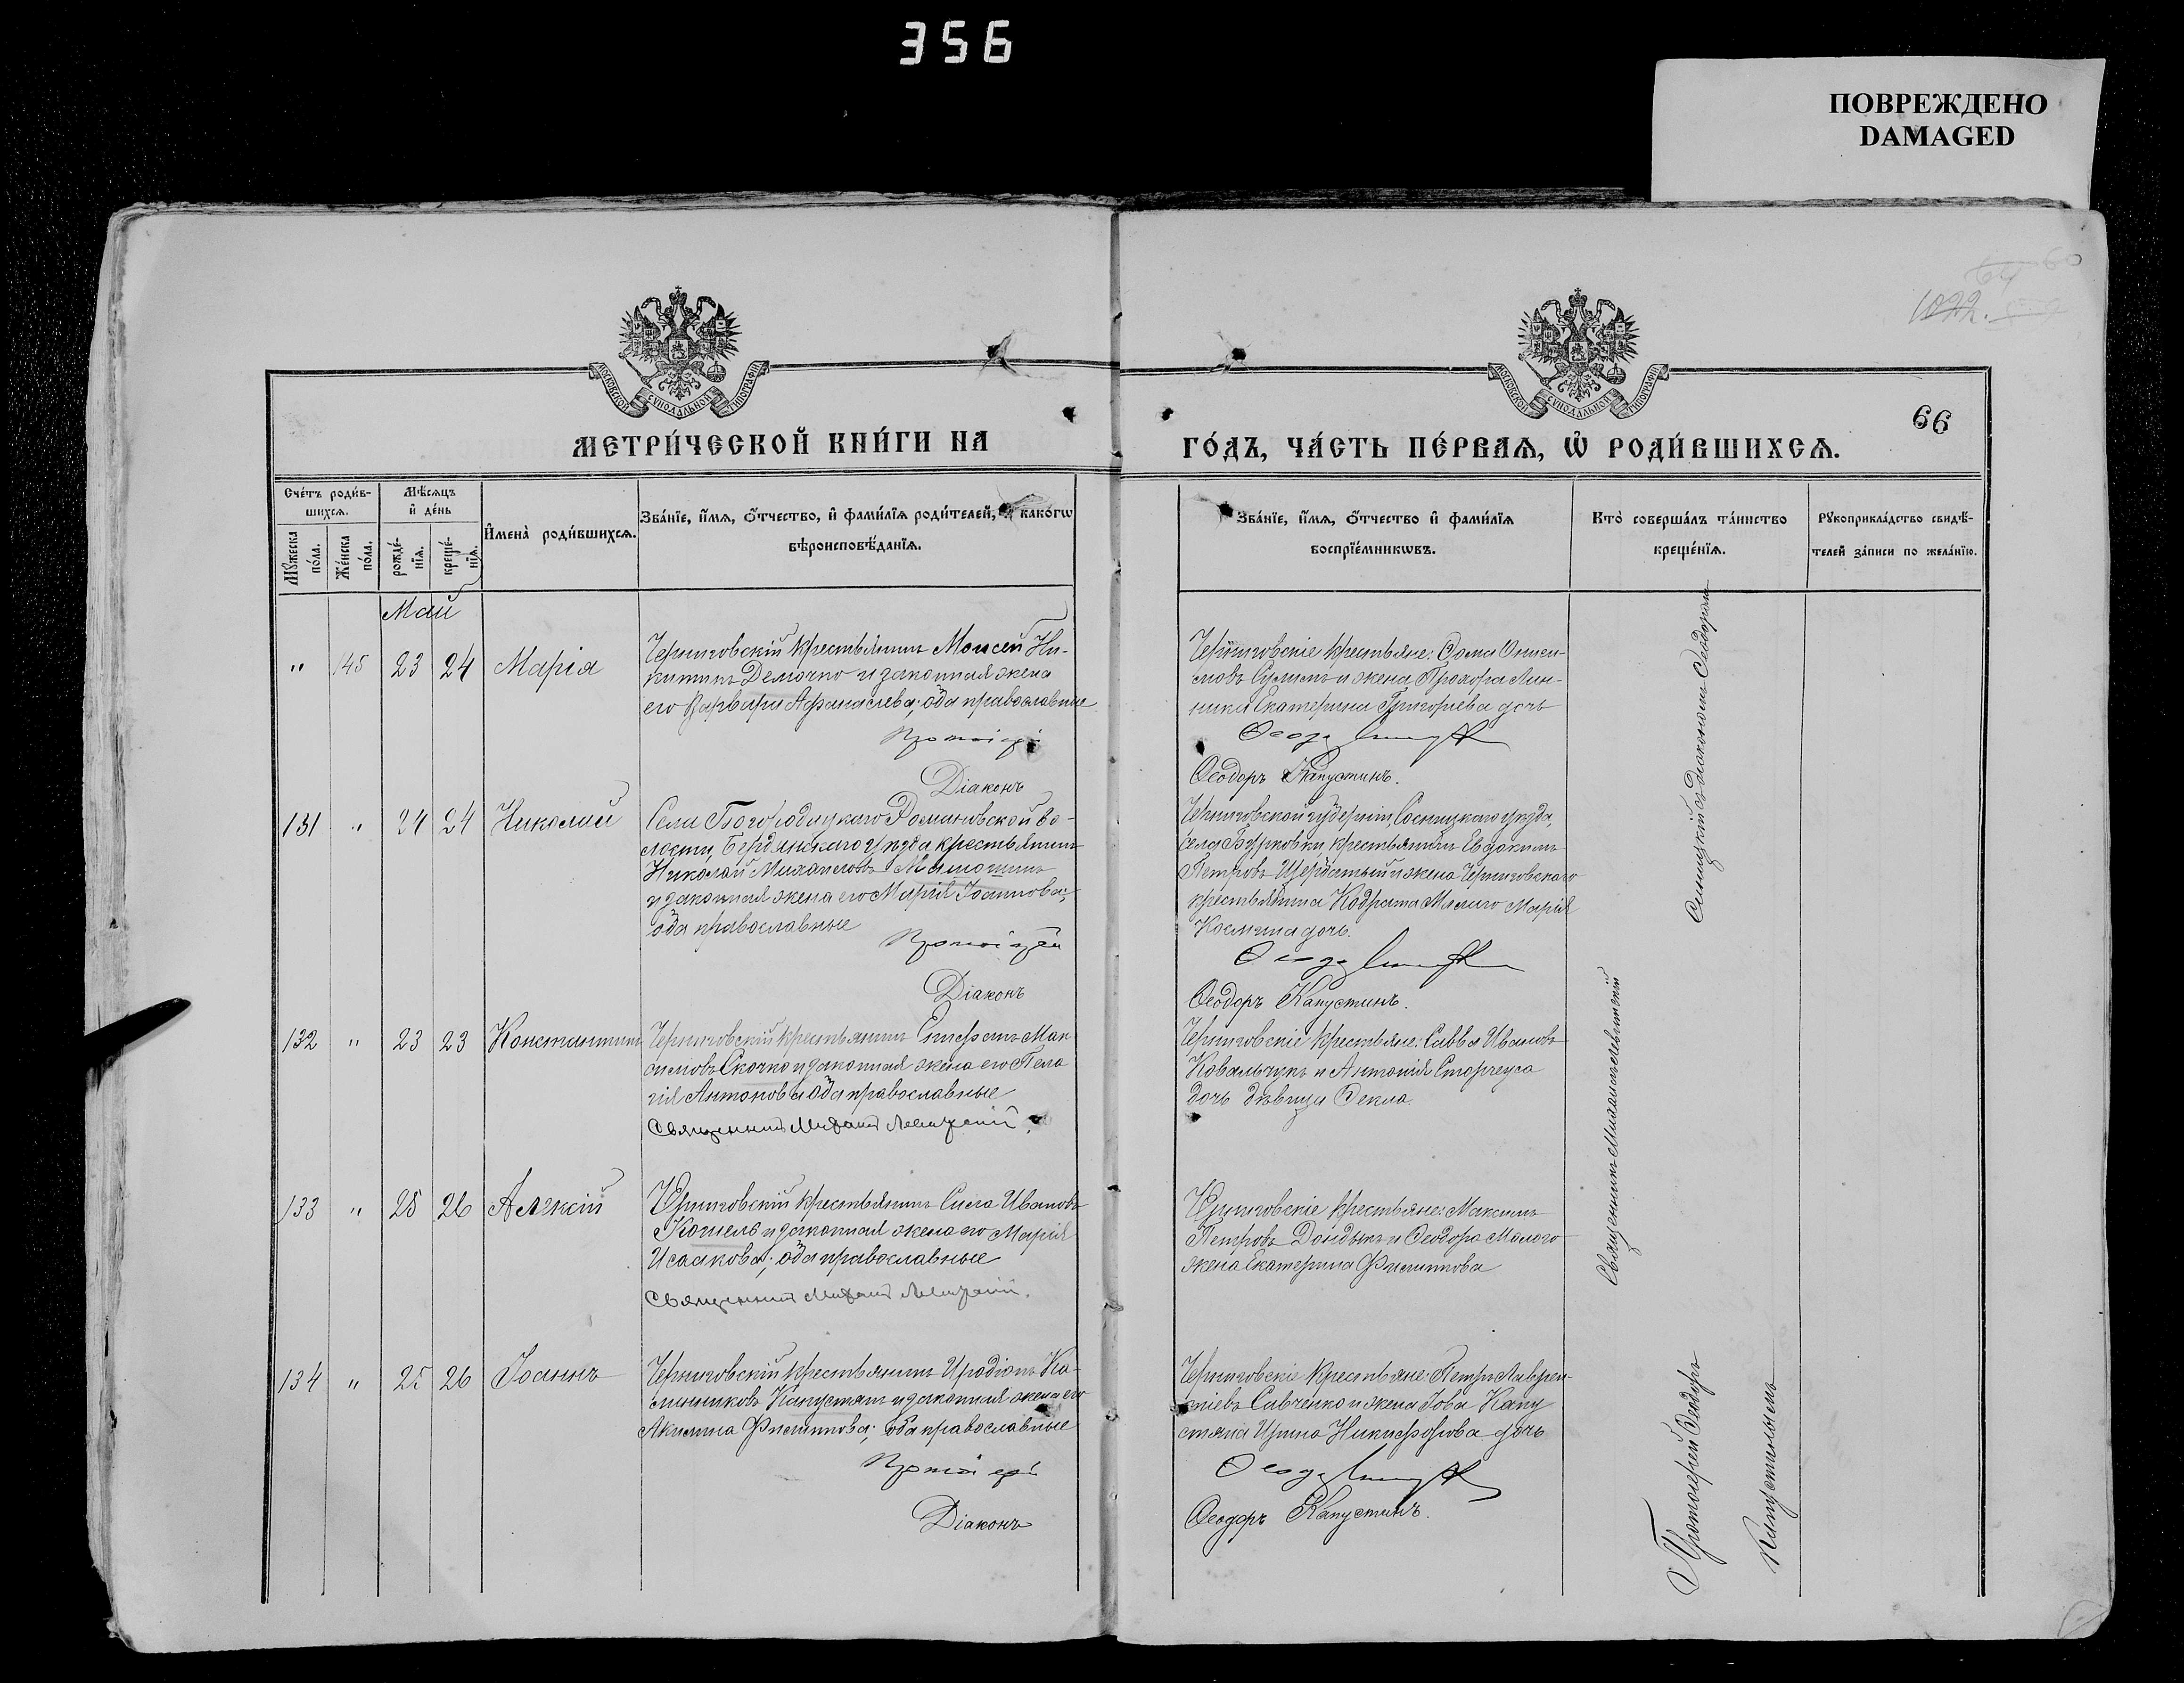 356
ПОВРЕЖДЕНО
DAMAGED
1022.
66
МОСКОВСКОЙ СѴНОДАЛЬНОЙ ТИПОГРАФІИ
МОСКОВСКОЙ СѴНОДАЛЬНОЙ ТИПОГРАФІИ
МЕТРИ́ЧЕСКОЙ КНИ́ГИ НА
ГО́ДЪ, ЧА́СТЬ ПЕ́РВАѦ, Ѽ РОДИ́ВШИХСѦ.
Сче́тъ роди́в-
шихсѧ.
Мѣ́сѧцъ
и҆ де́нь
Мꙋ́жеска
по́ла.
Же́нска
по́ла.
рожде́-
нїѧ.
креще́-
нїѧ.
И҆мена̀ роди́вшихсѧ.
Зва́нїе, и҆́мѧ, ѻ҆́тчество, и҆ фами́лїѧ роди́телей, како́гѡ
вѣроисповѣ́данїѧ.
Зва́нїе, и҆́мѧ, ѻ҆́тчество и҆ фами́лїѧ
воспрїе́мникѡвъ.
Кто̀ соверша́лъ та́инство
креще́нїѧ.
Рꙋкоприкла́дство свидѣ́-
телей за́писи по жела́нїю.
Май
" 145 23 24 Марія
Черниговскій крестьянинъ Моисей Ни-
китинъ Демочко и законная жена
его Варвара Афанасіева; оба православные
Протоіерей
Діаконъ
Черниговскіе крестьяне: Ѳома Ониси-
мовъ Сулимъ и жена Прохора Лин-
ника Екатерина Григорьева дочь
Ѳеодоръ Капустинъ.
131 " 24 24 Николай
Села Богородицкаго Романовской во-
лости, Бердянскаго уѣзда крестьянинъ
Николай Михаиловъ
и законная жена его Марія Іоаннова;
оба православные
Протоіерей
Діаконъ
Черниговской губерніи, Сосницкаго уѣзда,
села Бурковки, крестьянинъ Евдокимъ
Петровъ Щербатый и жена Черниговскаго
крестьянина Кодрата Малаго Марія
Космина дочь.
Ѳеодоръ Капустинъ.
132 " 23 23 Константинъ
Черниговскій крестьянинъ Епифанъ Мак-
симовъ Скочко и законная жена его Пела-
гія Антонова оба православные
Священникъ Михаилъ
Черниговскіе крестьяне: Савва Ивановъ
Ковальчукъ и Антонія Сторчеуса
дочь дѣвица Ѳекла.
133 " 25 26 Алексій
Черниговскій крестьянинъ Сила Ивановъ
Кошель и законная жена его Марія
Исаакова; оба православные
Священникъ Михаилъ
Черниговскіе крестьяне: Максимъ
Петровъ Дондыкъ и Ѳеодора Малого
жена Екатерина Филиппова
134 " 25 26 Іоаннъ
Черниговскій крестьянинъ Иродіонъ Ка-
линниковъ Капустянъ и законная жена его
Акилина Филиппова; оба православные
Протоіерей
Діаконъ
Черниговскіе крестьяне: Петръ Лаврен-
тіевъ Савченко и жена Іова Капу
стяна Ирина Никифорова дочь
Ѳеодоръ Капустинъ.
Протоіерей Ѳеодоръ
Синицкій съ діакономъ Ѳеодоромъ
Капустинымъ
Священникъ Михаилъ